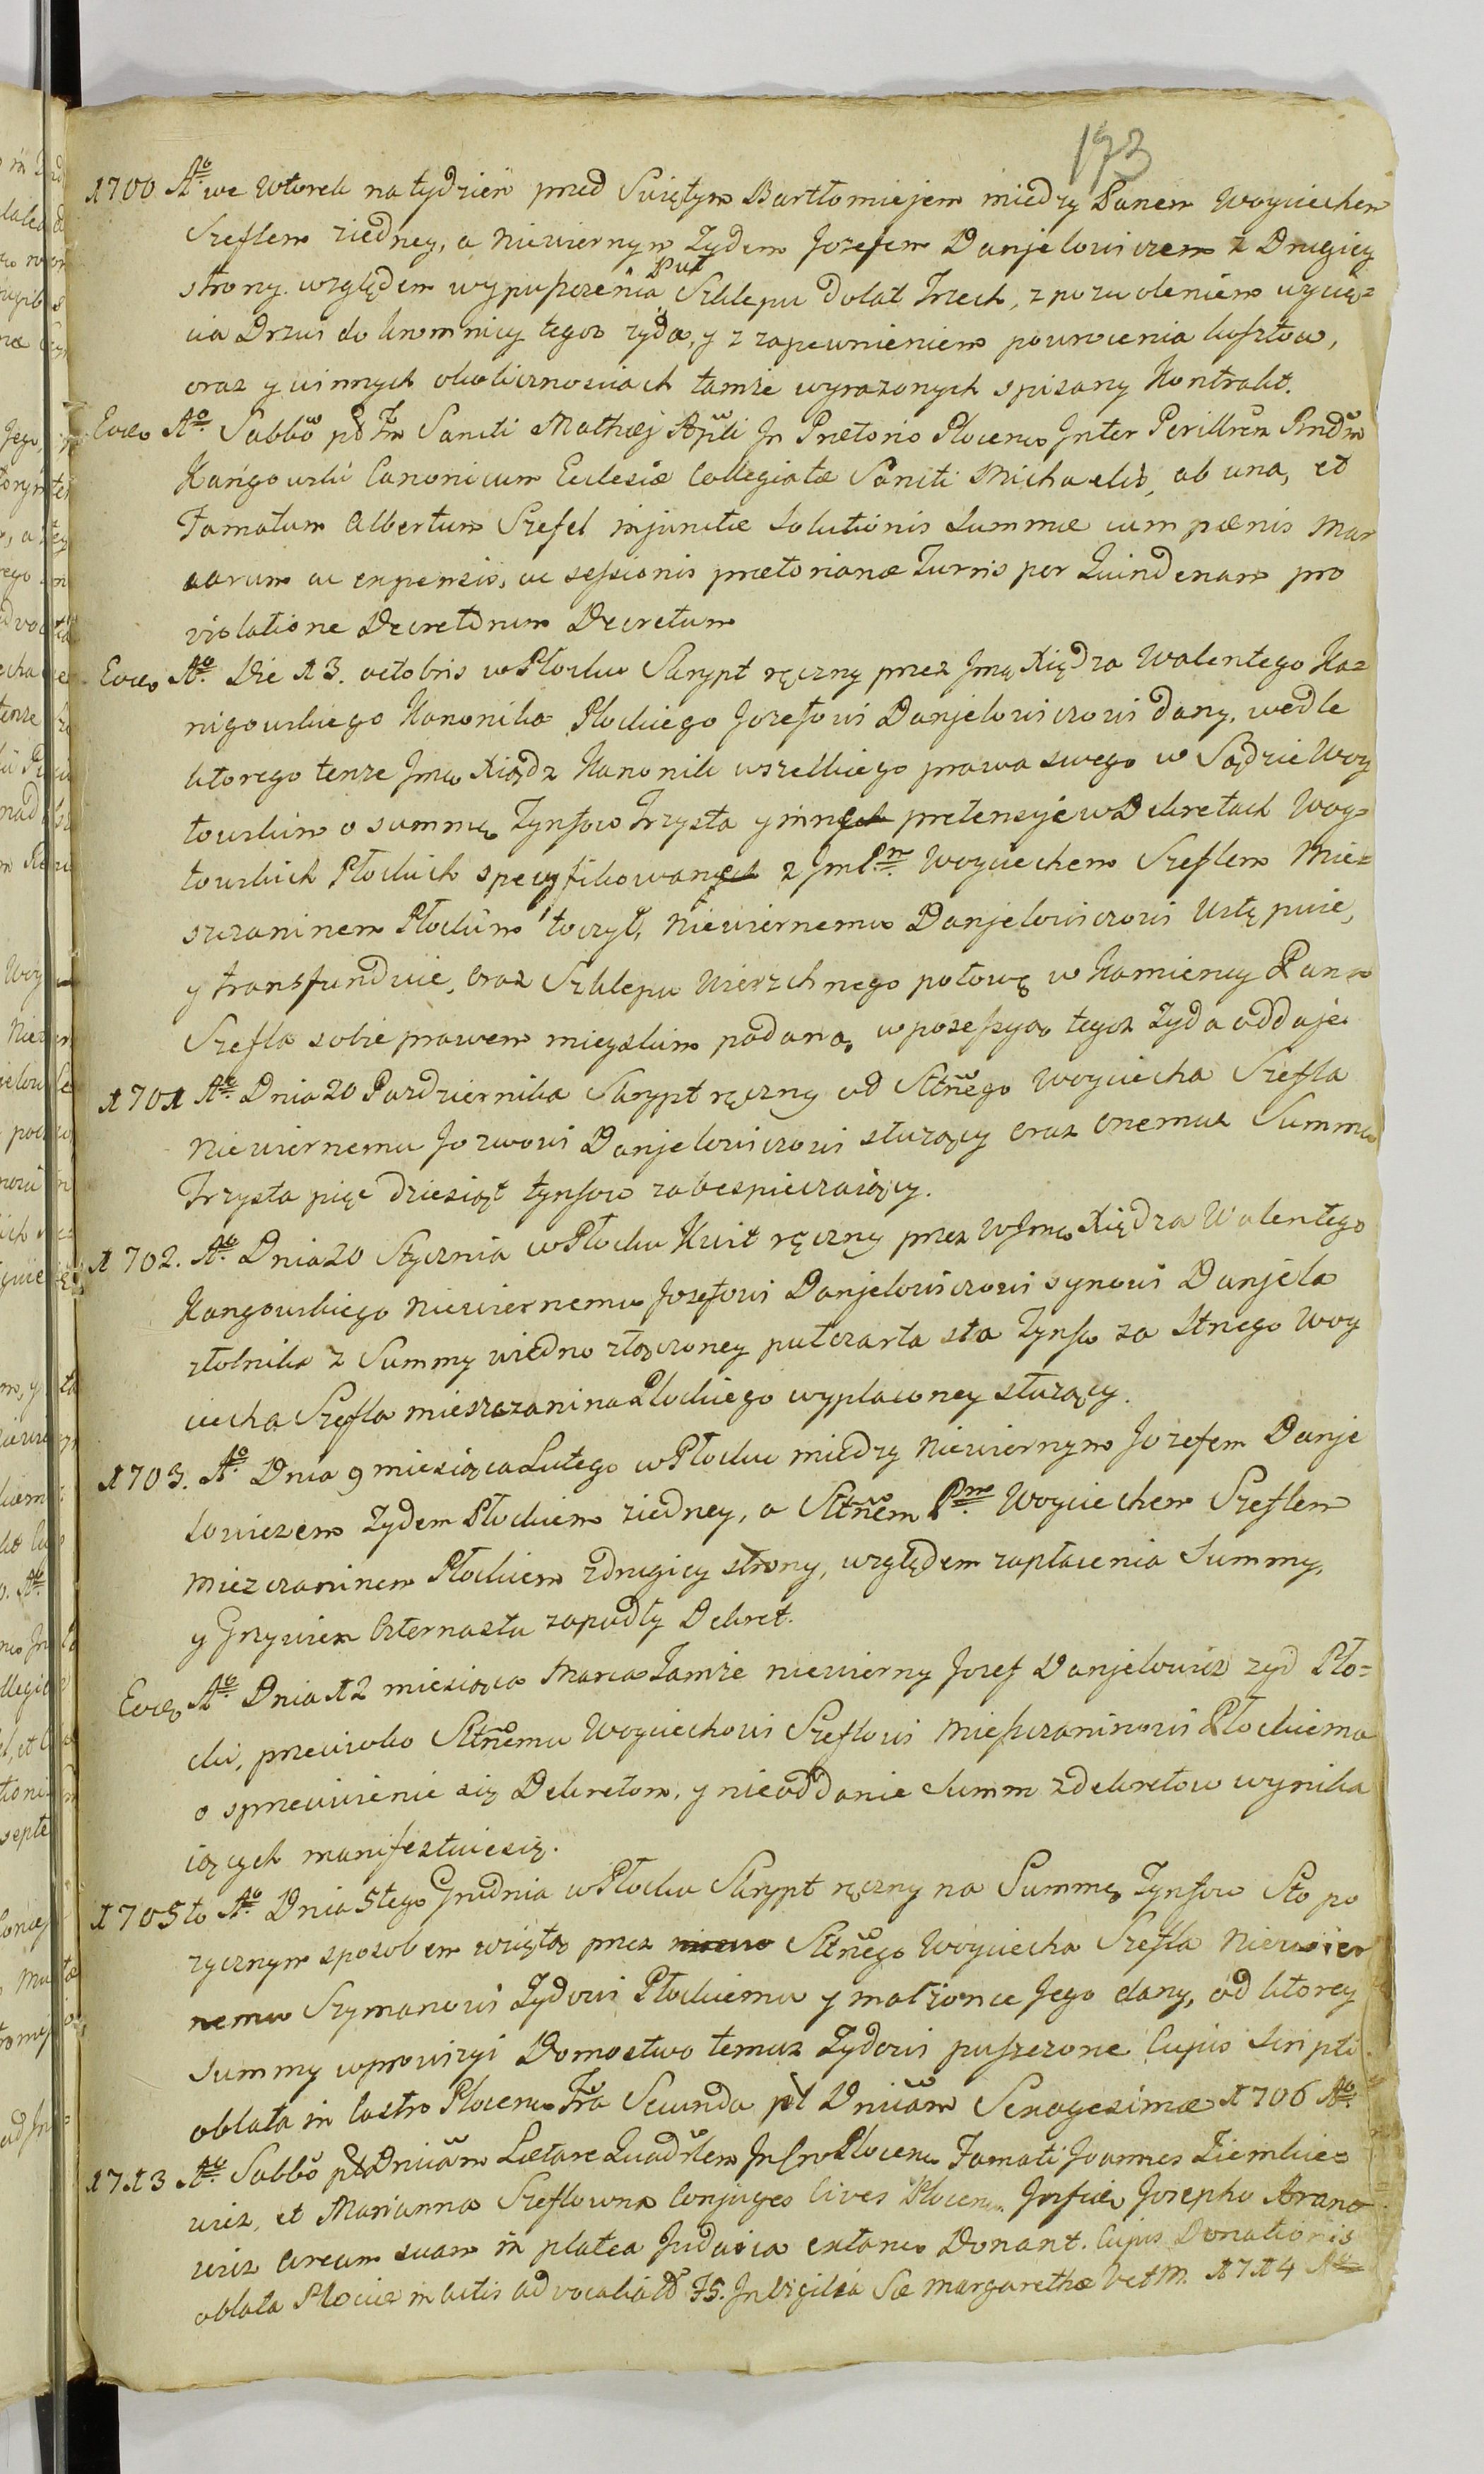 173
1700 Aº we Wtorek na tydzień przed Swiętym Bartłomiejem miedzy Panem Woyciechem
Szeflem ziedney, a Niewiernym Zydem Jozefem Danjelowiczem z Drugiey
strony względem wypuszczenia Puł Szklepu dolat Trzech, z pozwoleniem uzycię=
cia Drzwi do kromnicy tegoz zyda, y z zapewnieniem powrocenia kosztow,
oraz y winnych okolicznosciach tamże wyrazonych spisany Kontrakt.
Eodem Aº Sabbo pt Fm Sancti Mathæj Apli Jn Prætorio Plocen Jnter Perillrem Rndm
Kańgowski Canonicum Eclesiæ Collegiatæ Sancti Michaelis, ab una, et
Famatum Albertum Szefel injunctæ Solutionis Summæ cum pænis Mar
carum ac expensis, ac sessionis prætorianæ Turris per Quindenam pro
violatione Decretorum Decretum
Eodem Aº Die 13. octobris w Płocku Skrypt ręczny przez Jmę Xiędza Walentego Ka=
nigowskiego Kanonika Plockiego Jozefowi Danjelowiczowi dany, wedle
ktorego tenze Jmę Xiądz Kanonik wszelkiego prawa swego w Sądzie Woy
towskim o summę Tynfow Trzysta y innych pretensyje w Dekretach Woy=
towskich Płockich specyfikowanych z JmPm Woyciechem Szeflem Mie=
szczaninem Płockim toczył, Niewiernemu Danjelowiczowi Ustępuie,
y transfunduie, oraz Szklepu Wierzchnego połowę w Kamienicy Pana
Szefla sobie prawem mieyskim podaną, w posessyą tegoz Zyda oddaje
1701 Aº Dnia 20 Pazdziernika Skrypt ręczny od Sltnego Woyciecha Szefla
Niewiernemu Jozwowi Danjelowiczowi słuzący oraz onemuz Summę
Trzysta pięc dziesiąt tynfow zabespieczaiący.
1702. Aº Dnia 20 Stycznia w Płocku Kwit ręczny przez WJmę Xiędza Walentego
Kangowskiego Niewiernemu Jozefowi Danjelowiczowi synowi Danjela
złotnika z Summy wiedno złączoney pułczarta sta Tynfw za Stnego Woy
ciecha Szefla mieszczanina Plockiego wypłaconey słuzący.
1703. Aº Dnia 9 miesiąca Lutego w Płocku miedzy Niewiernym Jozefem Danje
lowiczem Zydem Płockiem ziedney, a Sltnem Pme Woyciechem Szeflem
Miezczaninem Płockiem zdrugiey strony, względem zapłacenia Summy,
y Grzywien Czternastu zapadły Dekret.
Eodem Aº Dnia 12 miesiąca Marca Tamże niewierny Jozef Danjelowicz zyd Pło=
cki, przeciwko Sltnemu Woyciechowi Szeflowi Mieszczaninowi Płockiema
o sprzeciwienie się Dekretom, y nieoddanie Summ zdekretow wynika
iących manifestuiesię.
1705to Aº Dnia 5tego Grudnia w Płocku Skrypt ręczny na Summę Tynfow Sto po
zycznym sposobem wziętą przez Sltnego Woyciecha Szefla Niewier
nemu Szymanowi Zydowi Płockiemu y małzonce Jego dany, od ktorey
summy wprowizyi Domostwo temuz Zydowi puszczone Cujus Scripti
oblata in Castro Plocen Fra Secunda pt Dnicam Sexagesimæ 1706 Aº
1713 Aº Sabbo pt Dnicam Lætare Quadrlem Jn Cro Plocen Famati Joannes Ziembie=
wicz, et Marianna Szeflowna Conjuges Cives Plocen. Jnfideli Josepho Arano
wicz Aream suam in platea Judaica extanem Donant. Cujus Donationis
oblata Plociæ in Actis Advocatialib F5. Jn Vigilia Sæ Margarethæ VetM. 1714 Aº